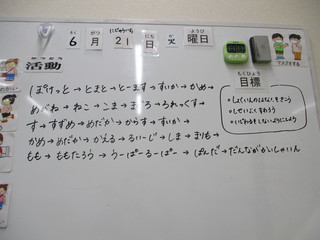 6 がつ 月 にじゅういち 21 にち 日 か 火 ようび 曜日
活動
マスクをする
もくひょう
目標
ぽけっと→とまと→とーます→すいか→かめ→
めがね→ねこ→こま→まぐろ→ろれっくす→
す→すずめ→めだか→からす→すいか→
かめ→めだか→かえる→るいーじ→しま→まりも→
もも→ももたろう→うーぱーるーぱー→ぱんだ→だんながかいしゃいん
・しせいよくすわろう